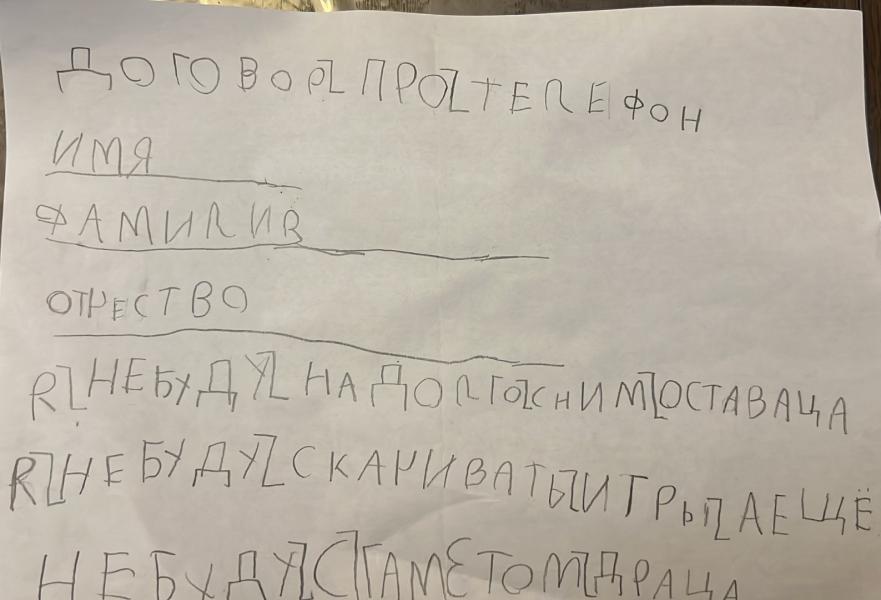 ДОГОВОР ПРО ТЕЛЕФОН
ИМЯ
ФАМИЛИЯ
ОТЧЕСТВО
Я НЕБУДУ НАДОЛГО СНИМ ОСТАВАЦА
Я НЕБУДУ СКАЧИВАТЬ ИГРЫ АЕЩЁ
НЕБУДУ С ГАМЕТОМ ДРАЦА